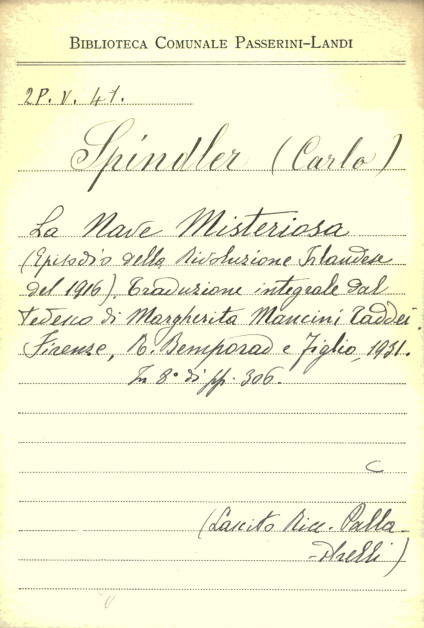 BIBLIOTECA COMUNALE PASSERINI-LANDI
2P. V. 41.
Spindler (Carlo)
La Nave Misteriosa
(Episodio della Rivoluzione Irlandese
del 1916). Traduzione integrale dal
tedesco di Margherita Mancini Taddei.
Firenze, R. Bemporad e Figlio, 1931.
In 8° di pp. 306.
C
(Lascito Ricc. Palla-
-strelli)